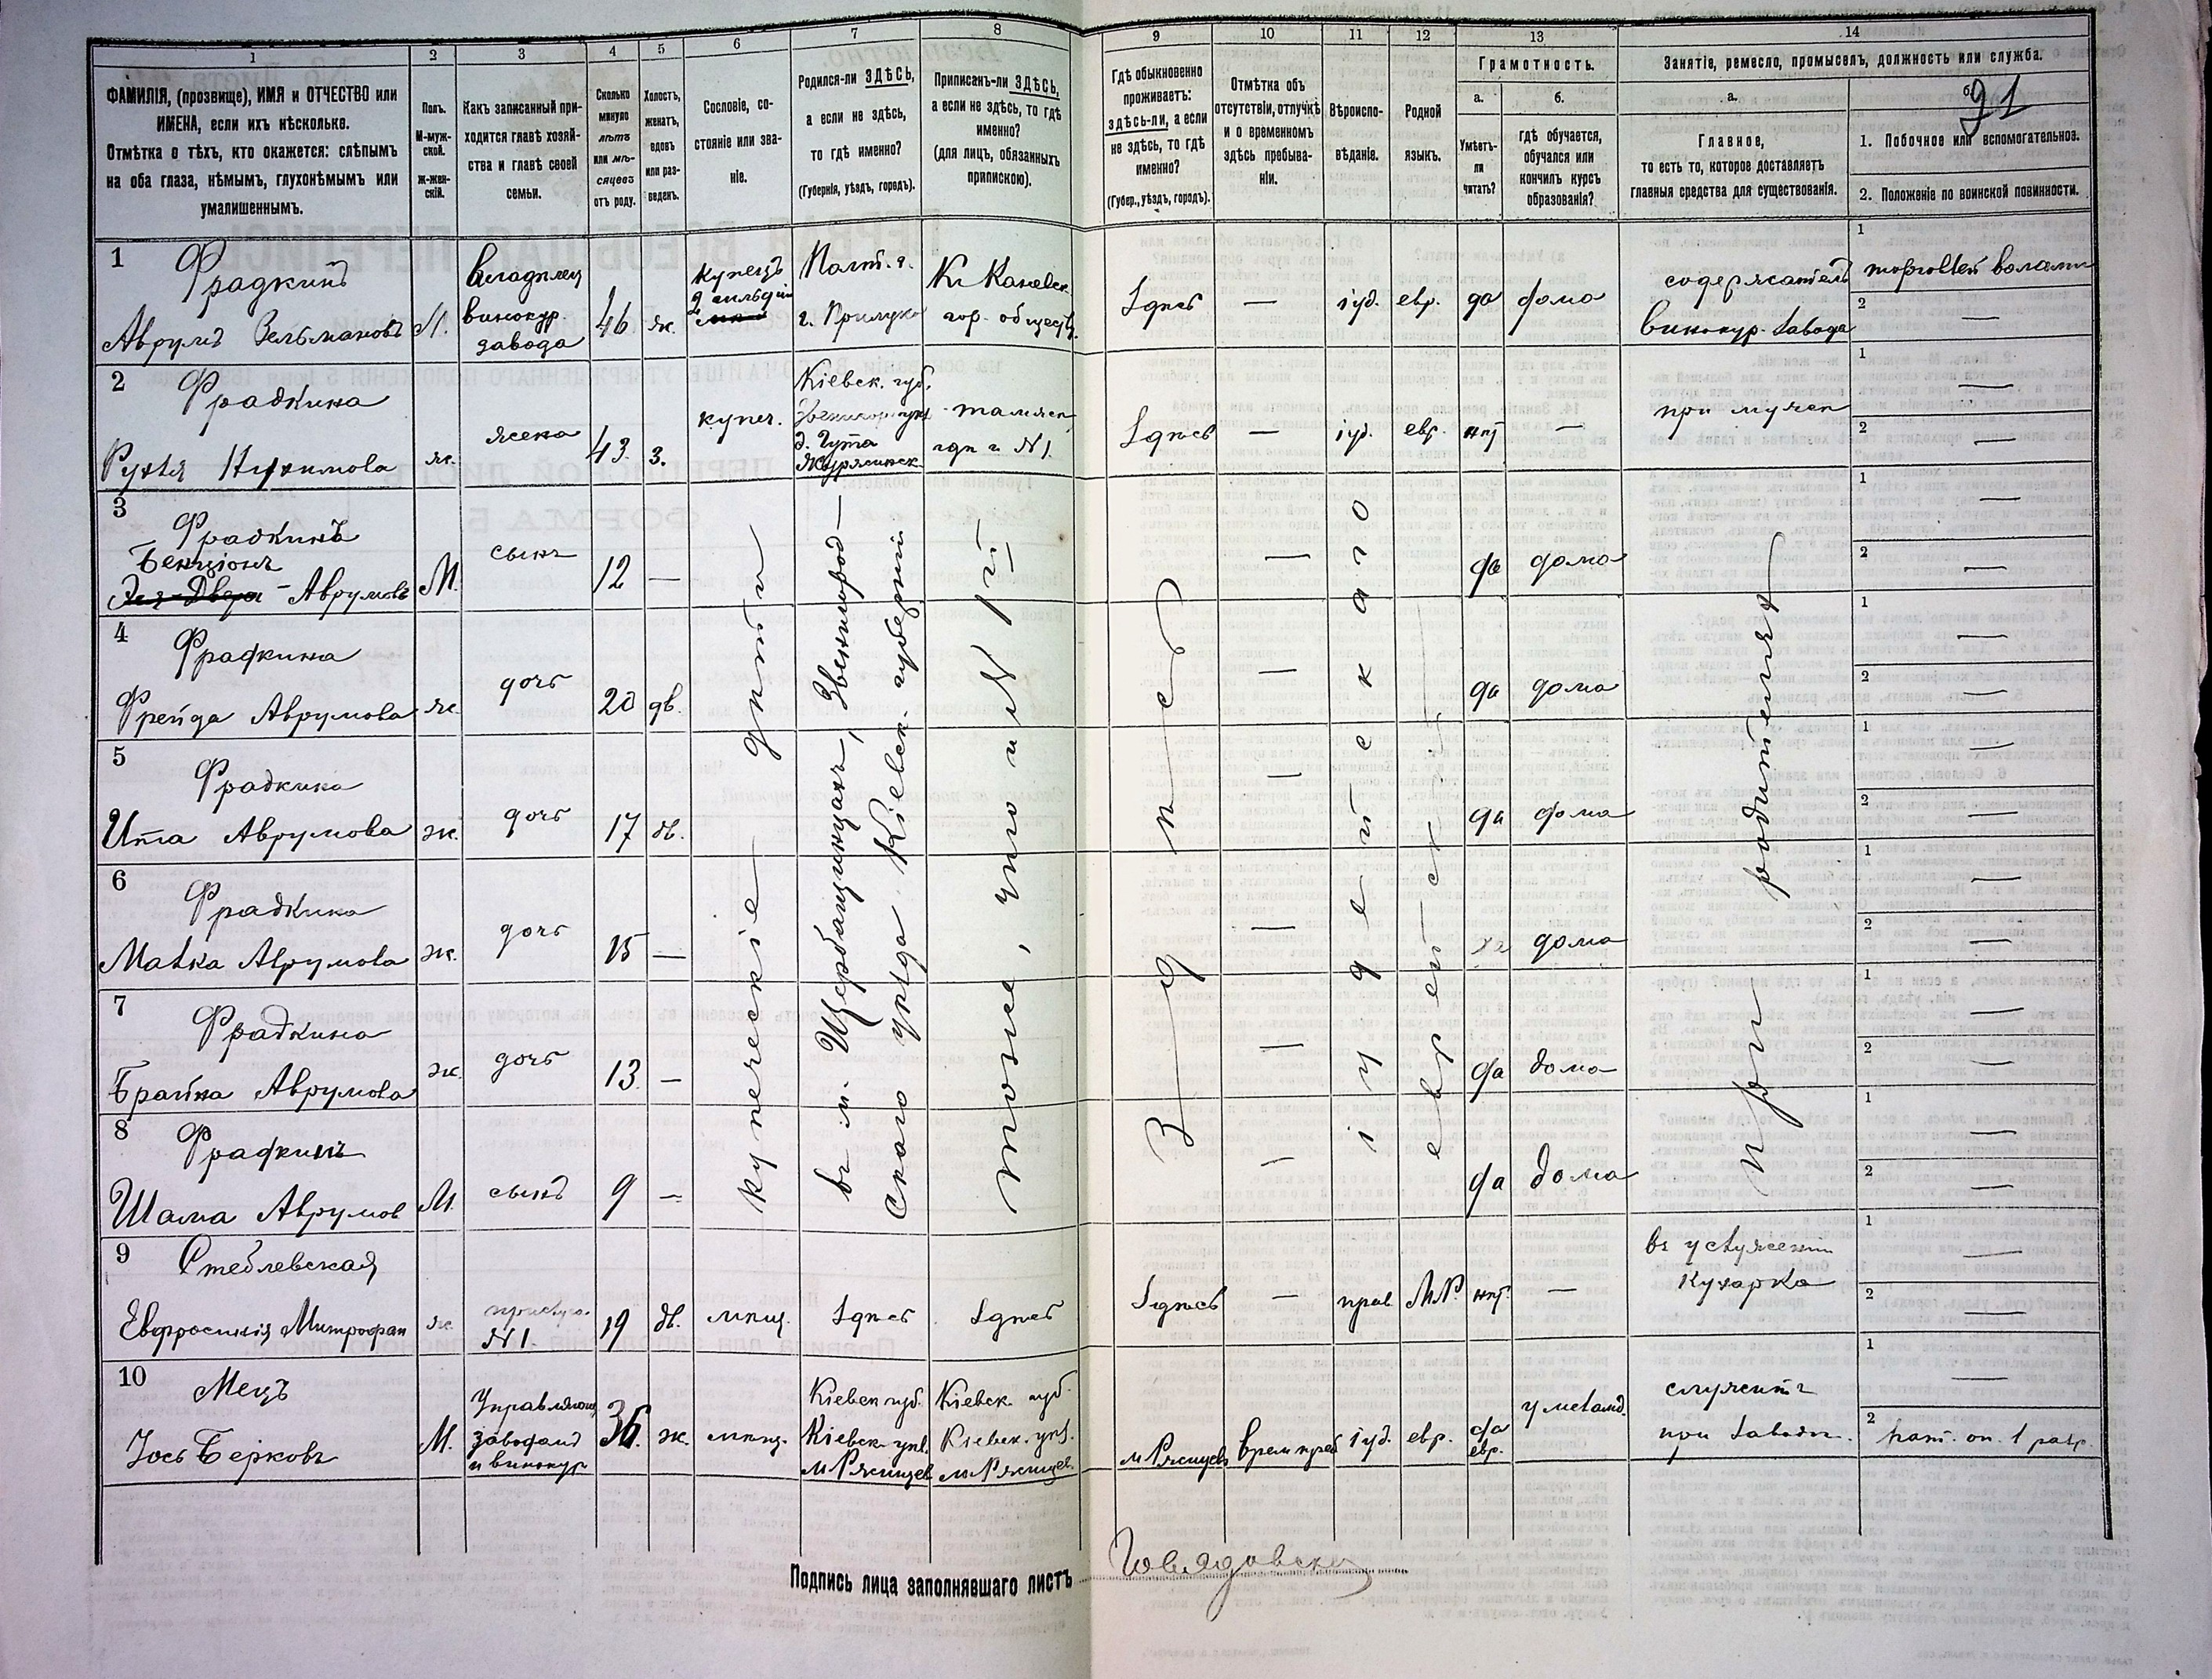 1 2 3 4 5 6 7 8 9 10 11 12 13 14
ФАМИЛІЯ, (прозвище), ИМЯ и ОТЧЕСТВО или
ИМЕНА, если ихъ нѣсколько.
Отмѣтка о тѣхъ, кто окажется: слѣпымъ
на оба глаза, нѣмымъ, глухонѣмымъ или
умалишеннымъ.
Полъ.
М-муж-
ской.
ж-жен-
скій.
Какъ записанный при-
ходится главѣ хозяй-
ства и главѣ своей
семьи.
Сколько
минуло
лѣтъ
или мѣ-
сяцевъ
отъ роду.
Холостъ,
женатъ,
вдовъ
или раз-
веденъ.
Сословіе, со-
стояніе или зва-
ніе.
Родился-ли ЗДѢСЬ,
а если не здѣсь,
то гдѣ именно?
(Губернія, уѣздъ, городъ).
Приписанъ-ли ЗДѢСЬ,
а если не здѣсь, то гдѣ
именно?
(для лицъ, обязанныхъ
припискою).
Гдѣ обыкновенно
проживаетъ:
здѣсь-ли, а если
не здѣсь, то гдѣ
именно?
(Губер., уѣздъ, городъ).
Отмѣтка объ
отсутствіи, отлучкѣ
и о временномъ
здѣсь пребыва-
ніи.
Вѣроиспо-
вѣданіе.
Родной
языкъ.
Грамотность.
а.
Умѣетъ-
ли
читать?
б.
гдѣ обучается,
обучался или
кончилъ курсъ
образованія?
Занятіе, ремесло, промыселъ, должность или служба.
а.
Главное,
то есть то, которое доставляетъ
главныя средства для существованія.
б.
91
1. Побочное или вспомогательное.
2. Положеніе по воинской повинности.
1
Фрадкинъ
Аврумъ Зельмановъ
М.
владѣлец
винокур.
завода
46
ж.
купецъ
2 гильдіи
Полт. г.
г. Прилуки
Къ Каневск.
гор. обществ.
Здѣсь
—
іуд.
евр.
да
дома
содержатель
винокур. завода
1
торговлей волами
2
—
2
Фрадкина
Рухля Нухимова
ж.
жена
43.
з.
купеч.
Кіевск. губ.
Звенигор. уѣз
д. Гута
тамже
гдѣ и N 1.
Здѣсь
—
іуд.
евр.
нѣт
—
при мужѣ
1
—
2
—
3
Фрадкинъ
Бенціонъ
Аврумовъ
М.
сынъ
12
—
купеческіе дѣти
въ м. Щербашинцахъ, Звенигород-
скаго уѣзда Кіевск. губерніи
тоже, что и N 1й
Здѣсь
іудейскаго
еврейск
при родителяхъ
—
да
дома
1
—
2
—
4
Фрадкина
Фрейда Аврумова
ж.
дочь
20
дв.
—
да
дома
1
—
2
—
5
Фрадкина
Ита Аврумова
ж.
дочь
17
дв.
—
да
дома
1
—
2
—
6
Фрадкина
Малка Аврумова
ж.
дочь
15
—
—
да
дома
1
—
2
—
7
Фрадкина
Брайна Аврумова
ж.
дочь
13.
—
—
да
дома
1
—
2
—
8
Фрадкинъ
Шама Аврумов
М.
сынъ
9
—
—
да
дома
1
—
2
—
9
Стеблевская
Евфросинія Митрофан
ж.
прислуга
N 1.
19
дв.
мѣщ.
Здѣсь
Здѣсь
Здѣсь
—
прав.
МР.
нѣт.
—
въ услуженіи
Кухарка
1
—
2
—
10
Мецъ
Іось Берковъ
М.
Управляющ
заводамъ
и винокур
36.
ж.
мѣщ.
Кіевск губ.
Кіевск. уѣз.
м Ржищев
Кіевск. губ.
Кіевск. уѣз.
м Ржищев.
м Ржищевъ
врем преб
іуд.
евр.
да
евр.
у меламд.
служитъ
при заводѣ.
1
—
2
рат. оп. 1 разр.
Подпись лица заполнявшаго листъ